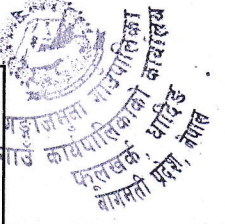 गङ्गाजमुना गाउँपालिका
गाउँ कार्यपालिकाको कार्यालय
फुलखर्क, धादिङ
बागमती प्रदेश, नेपाल